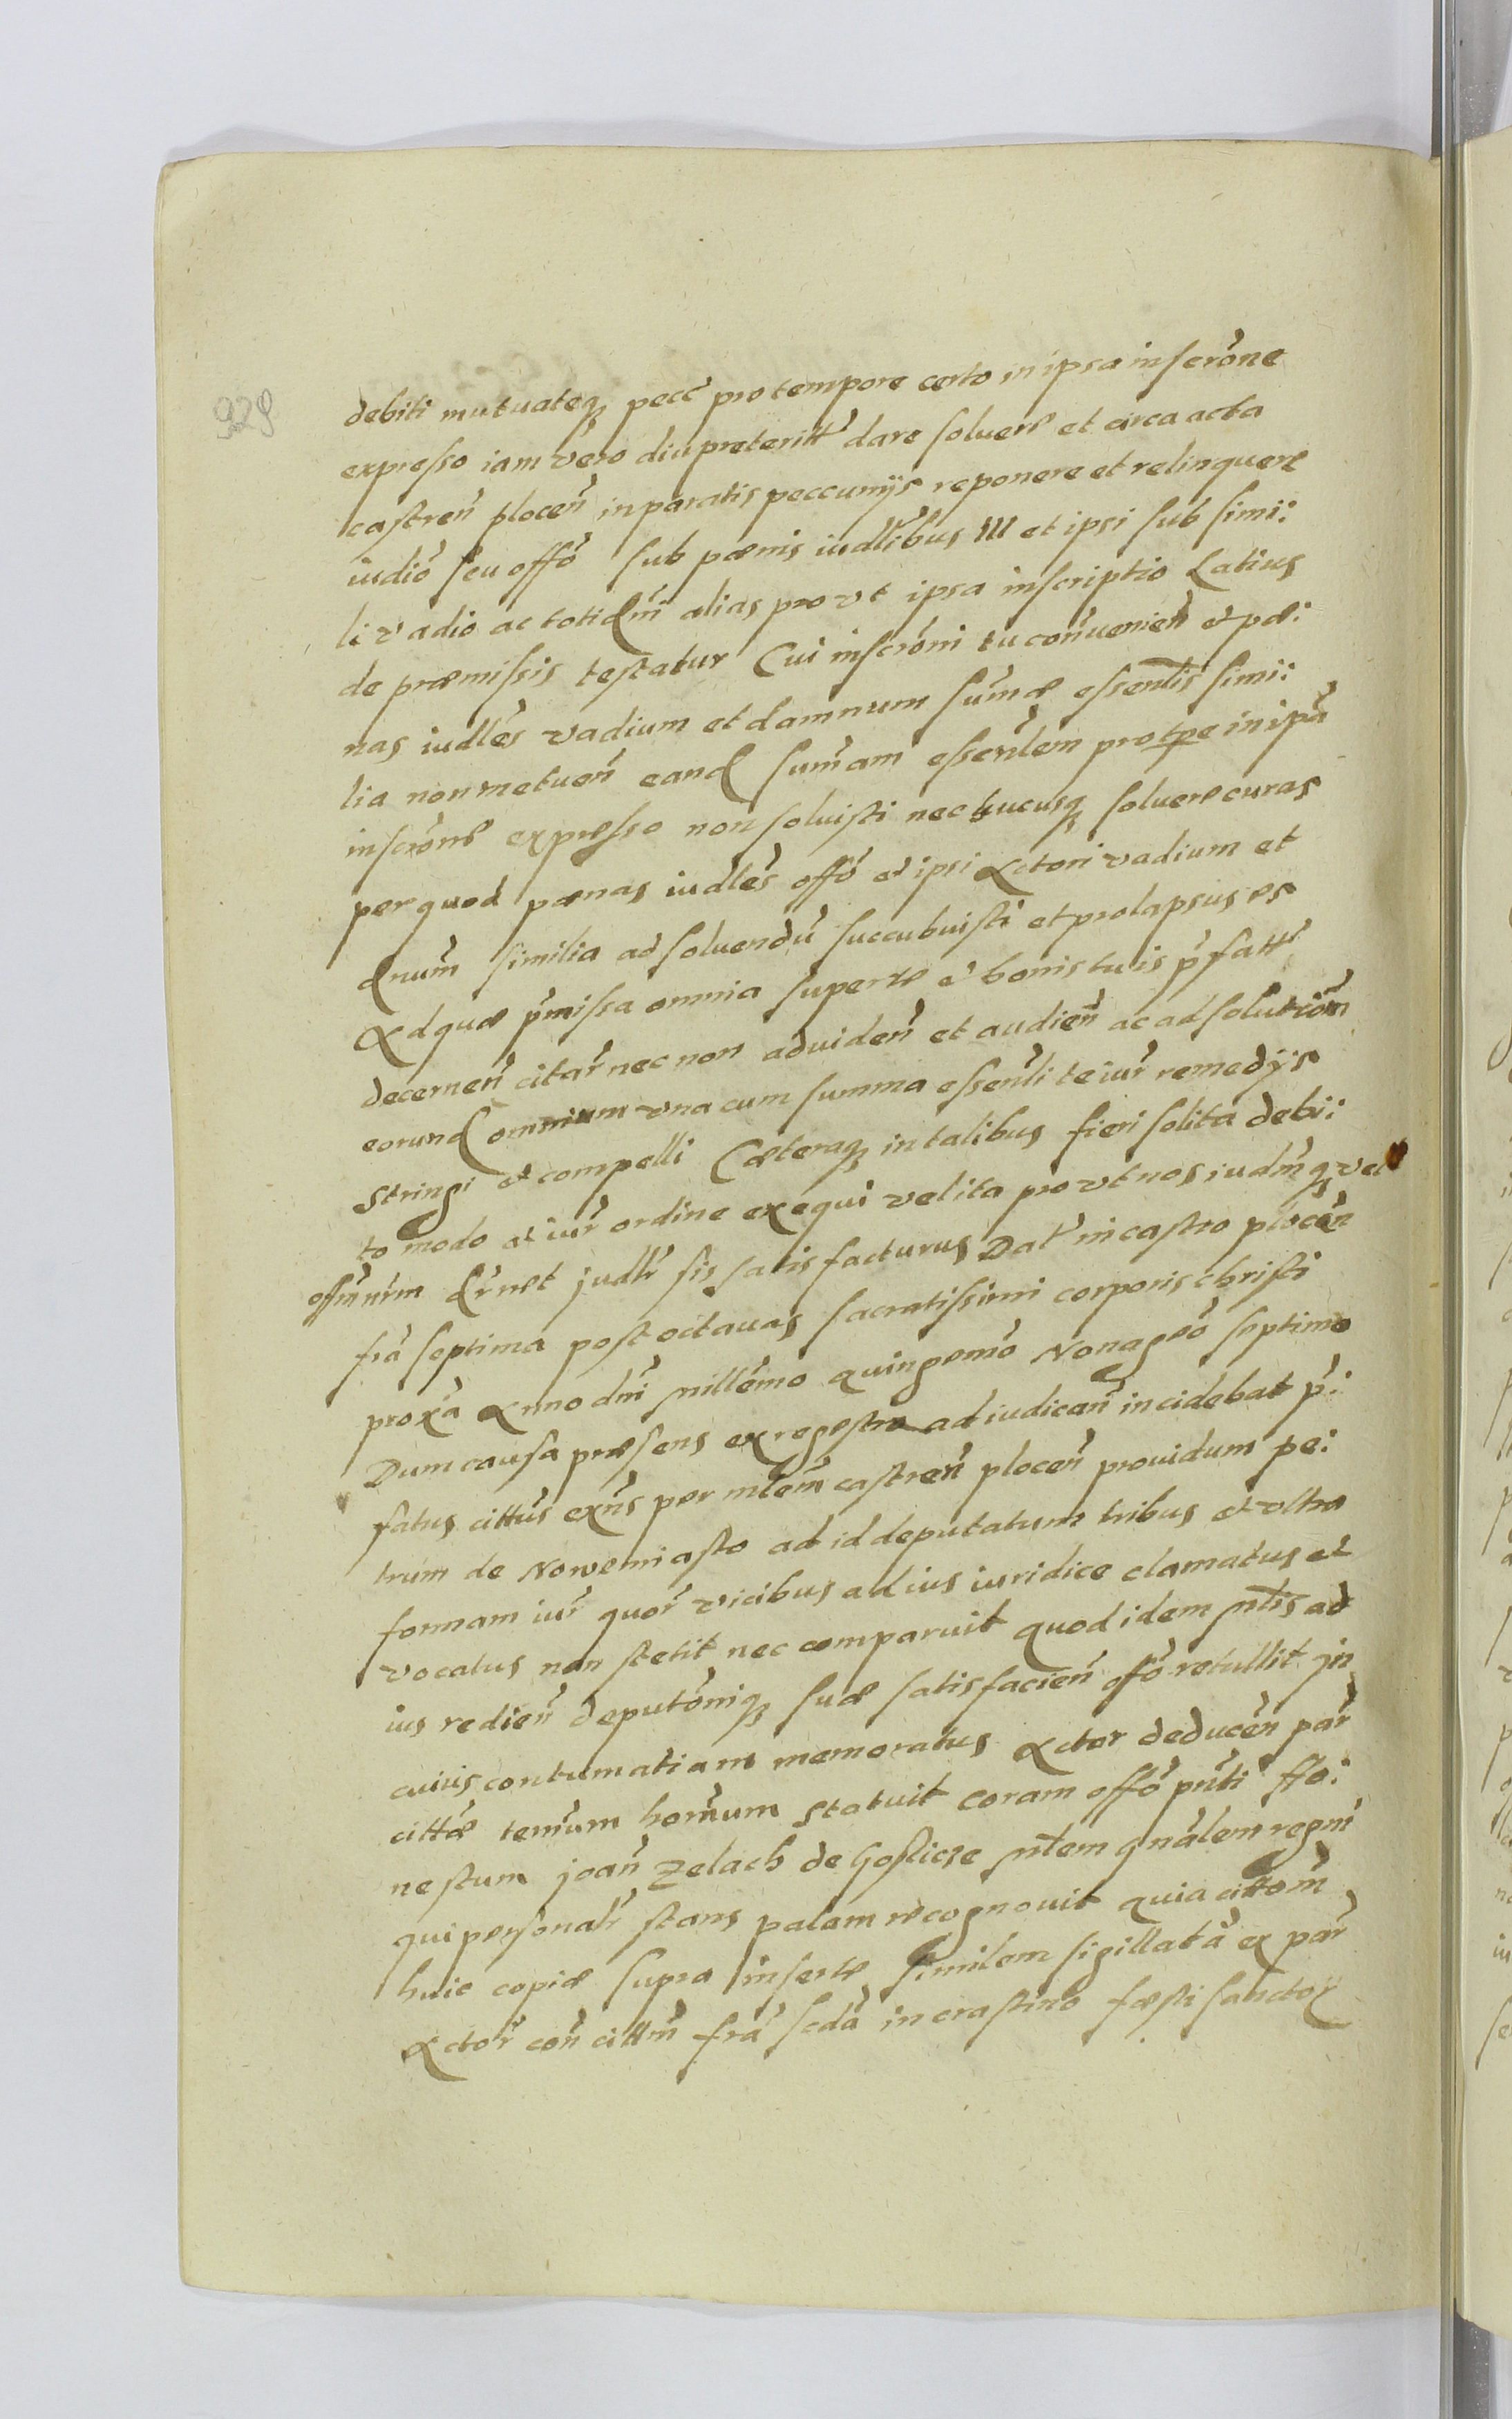 929
debiti mutuateq pecc pro tempore certo in ipsa inscrōne
expresso iam vero diu preteritt dare soluere et circa acta
castreñploceñ in paratis peccunijs reponere et relinquere
iudiō seu offō sub pœnis iudlibus III et ipsi sub simi:
li vadio ac totidm alias prout ipsa inscriptio Latius
de præmissis testatur Cui inscrōni tu conuenieñ et pœ:
nas iudles vadium et damnum sum̃æ essentlis simi:
lia non metueñ eand sum̃am essenlem pro tpe in ipā
inscrōne expresso non soluisti nec hucusq soluere curas
per quod pœnas iudles offō et ipsi Actori vadium et
dnum̃ similia ad soluendū succubuisti et prolapsus es
Ad quæ p̃missa omnia super te et bonis tuis p̃fatt
decerneñ citar̃ nec non ad videñ et audieñ ac ad solutiōm
eorund omnium vna cum summa essenli te iur̃ remedijs
stringi et compelli Cæteraq in talibus fieri solita debi:
to modo ac iur̃ ordine exequi velita prout nos iudm̃q vel
offm̃ nr̃m dr̃net judlr sis satisfacturus Dat in castro ploceñ
fr̃a septima post octauas sacratissimi corporis christi
proxā Anno dñi millēmo quingemō Nonagēō septimo
Dum causa præsens ex regestro ad iudicañ incidebat p̃:
fatus cittus exñs per mlem̃ castreñ ploceñ prouidum pe:
trum de Nowemiasto ad id deputatum tribus et vltra
formam iur̃ quor̃ vicibus ad ius iuridice clamatus et
vocatus non stetit nec comparuit quod idem mtlis ad
ius redieñ deputōniq suæ satisfacieñ offō retullit jn
cuius contumatiam memoratus Actor deduceñ par̃
cittæ termum homum statuit coram offō pñti Ho:
nestum joañ Zelach de Gosticze mlem gñalem regni
qui personalr stans palam recognouit quia cittōm̃
huic copiæ supra insertæ similem sigillatā ex par̃
Actor̃ coñ cittm̃ fr̃a scdā in crastino fæsti sanctor